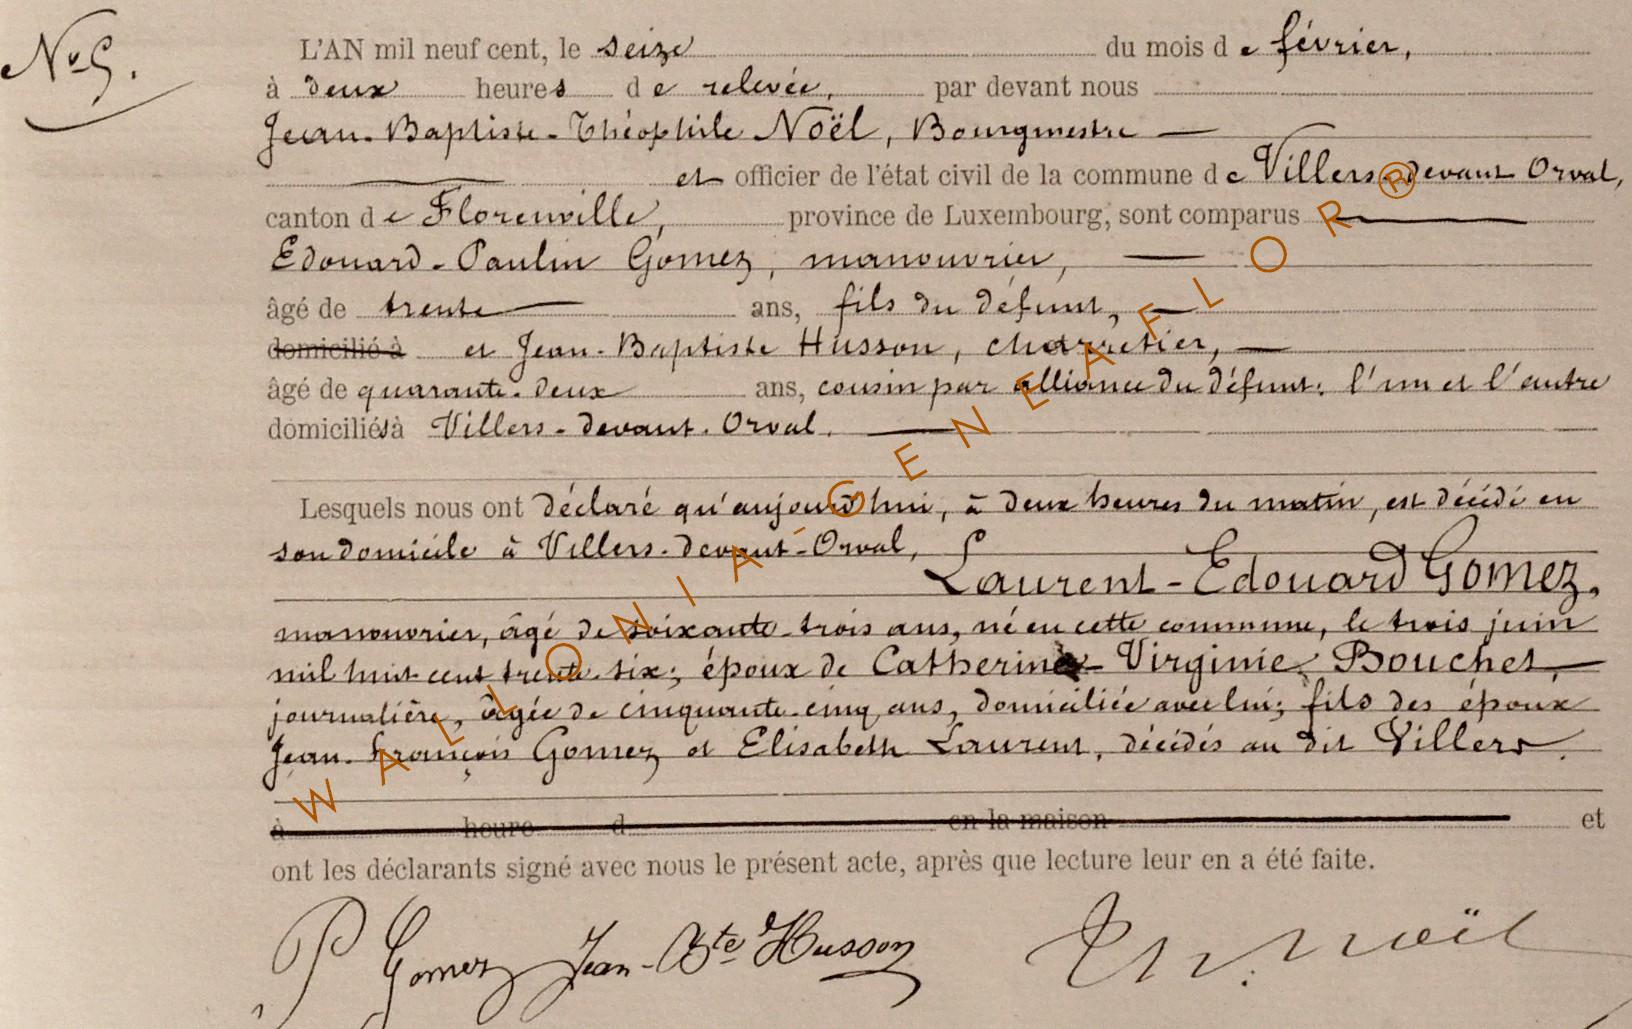 No 5.
L'AN mil neuf cent, le seize du mois de février,
à deux heures de relevée, par devant nous
Jean-Baptiste-Théophile Noël, Bourgmestre —
et officier de l'état civil de la commune de Villers-devant Orval,
canton de Florenville, province de Luxembourg, sont comparus —
Edouard-Paulin Gomez, manouvrier, —
âgé de trente — ans, fils du défunt, —
domicilié à et Jean-Baptiste Husson, charretier, —
âgé de quarante-deux ans, cousin par alliance du défunt; l'un et l'autre
domiciliés à Villers-devant-Orval. —
Lesquels nous ont déclaré qu'aujourd'hui, à deux heures du matin, est décédé en
son domicile à Villers-devant-Orval,
Laurent-Edouard Gomez,
manouvrier, âgé de soixante-trois ans, né en cette commune, le trois juin
mil huit cent trente-six; époux de Catherine-Virginie Bouchet, —
journalière, âgée de cinquante-cinq ans, domiciliée avec lui; fils des époux
Jean-François Gomez et Elisabeth Laurent, décédés au dit Villers.
à heure d en la maison et
ont les déclarants signé avec nous le présent acte, après que lecture leur en a été faite.
P Gomez Jean-Bte Husson Th. Noël
WALLONIA-GENEAFLOR®